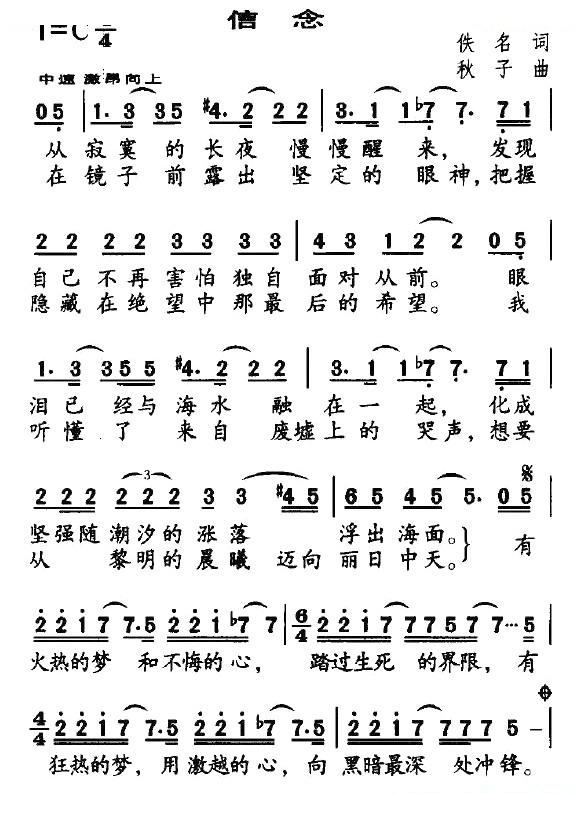 信念
1=C 4/4
佚名 词
秋子 曲
中速 激昂向上
0 5 | 1. 3 3 3 5 #4. 2 2 2 2 | 3. 1 1 b7 7. 7 1 |
从寂寞的长夜慢慢醒来，发现
在镜子前露出坚定的眼神，把握
2 2 2 2 3 3 3 3 | 4 3 1 2 2 0 5 |
自己不再害怕独自面对从前。眼
隐藏在绝望中那最后的希望。我
1. 3 3 5 5 #4. 2 2 2 2 | 3. 1 1 b7 7. 7 1 |
泪已经与海水融在一起，化成
听懂了来自废墟上的哭声，想要
2 2 2 2 2 2 3 3 #4 5 | 6 5 4 5 5. 0 5 |
坚强随潮汐的涨落浮出海面。有
从黎明的晨曦迈向丽日中天。
2 2 1 7 7. 5 2 2 1 b7 7 | 6/4 2 2 1 7 7 7 5 7 7 ··· 5 |
火热的梦 和不悔的心， 踏过生死 的界限，有
4/4 2 2 1 7 7. 5 2 2 1 b7 7. 5 | 2 2 1 7 7 7 7 5 - |
狂热的梦，用激越的心，向黑暗最深 处冲锋。